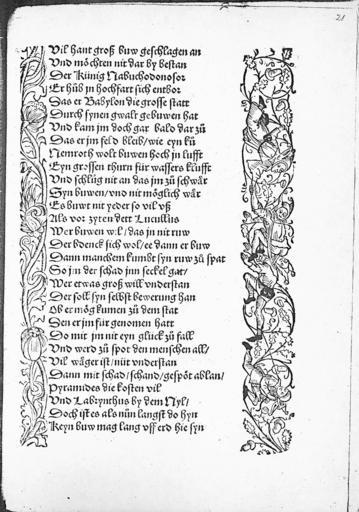 21
Vil hant groß buw geschlagen an
Vnd möchten nit dar by bestan
Der Künig Nabuchodonosor
Er hůb jn hochfart sich entbor
Das er Babylon die grosse statt
Durch synen gwalt gebuwen hat
Vnd kam jm doch gar bald dar zů
Das er jm feld bleib / wie eyn ků
Nemroth wolt buwen hoch jn lufft
Eyn grossen thurn für wassers klufft
Vnd schlůg nit an das jm zů schwär
Syn buwen / vnd nit möglich wär
Es buwt nit yeder so vil vß
Als vor zyten dett Lucullus
Wer buwen wil / das jn nit ruw
Der bdenck sich wol / ee dann er buw
Dann manchem kumbt syn ruw zů spat
So jm der schad jnn seckel gat /
Wer etwas groß will vnderstan
Der soll syn selbst bewerung han
Ob er mög kumen zů dem stat
Den er jm für genomen hatt
Do mit jm nit eyn glück zů fall
Vnd werd zů spot den menschen all /
Vil wäger ist / nüt vnderstan
Dann mit schad / schand / gespöt ablan /
Pyramides die kosten vil
Vnd Labrynthus by dem Nyl /
Doch ist es als nůn langst do hyn
Keyn buw mag lang vff erd hie syn